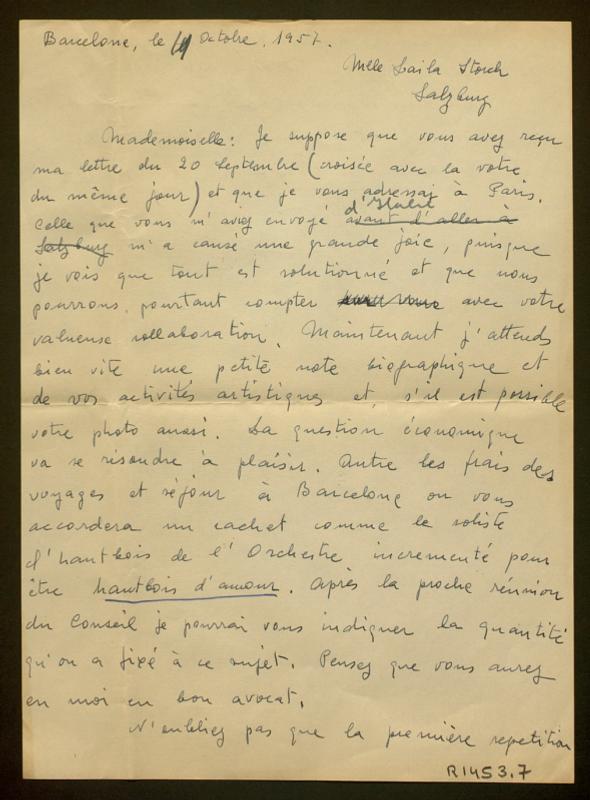 Barcelone, le 11 Octobre, 1957.
Mlle Laila Storch
Salzburg
Mademoiselle: Je suppose que vous avez reçu
ma lettre du 20 septembre (croisée avec la votre
du même jour) et que je vous adressai à Paris.
Celle que vous m'aviez envoyé avant d'aller à
Salzburg m'a causé une grande joie, puisque
je vois que tout est solutionné et que nous
pourrons, pourtant compter avec votre
valueuse collaboration. Maintenant j'attends
bien vite une petite note biographique et
de vos activités artistiques et, s'il est possible
votre photo aussi. La question économique
va se résoudre à plaisir. Outre les frais des
voyages et séjour à Barcelone on vous
accordera un cachet comme le soliste
d'hautbois de l'Orchestre incrementé pour
être hautbois d'amour. Après la proche réunion
du Conseil je pourrai vous indiquer la quantité
qu'on a fixé à ce sujet. Pensez que vous aurez
en moi un bon avocat.
N'oubliez pas que la première repetition
R1453.7